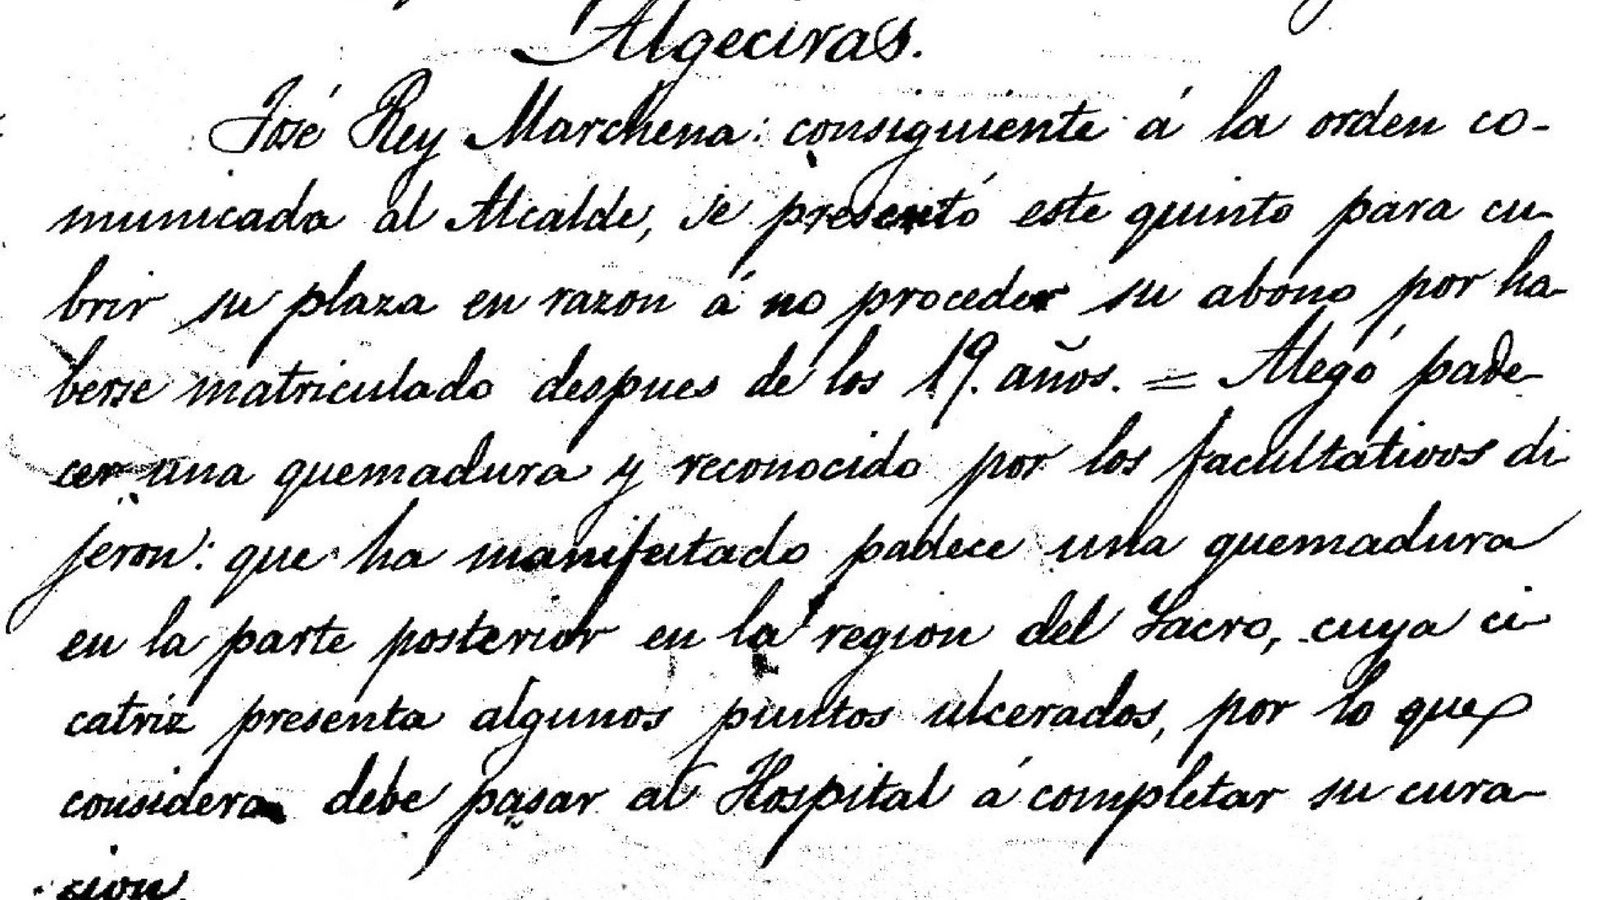 Algeciras.
José Rey Marchena: consiguiente á la orden co-
municada al Alcalde, se presentó este quinto para cu-
brir su plaza en razon á no proceder su abono por ha-
berse matriculado despues de los 19. años. = Alegó pade-
cer una quemadura y reconocido por los facultativos di
jeron: que ha manifestado padece una quemadura
en la parte posterior en la region del Sacro, cuya ci-
catriz presenta algunos puntos ulcerados, por lo que
considera debe pasar al Hospital á completar su cura-
cion.